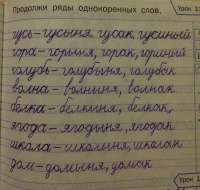 Продолжи ряды однокоренных слов.
Урок 1
гусь-гусыня, гусак, гусиный
гора-горыня, горак, гориный
голубь-голубыня, голубак
волна-волныня, волнак
белка-белкыня, белкак,
ягода-ягодыня, ягодак
школа-школыня, школак
дом-домыня, домак
Урок 1